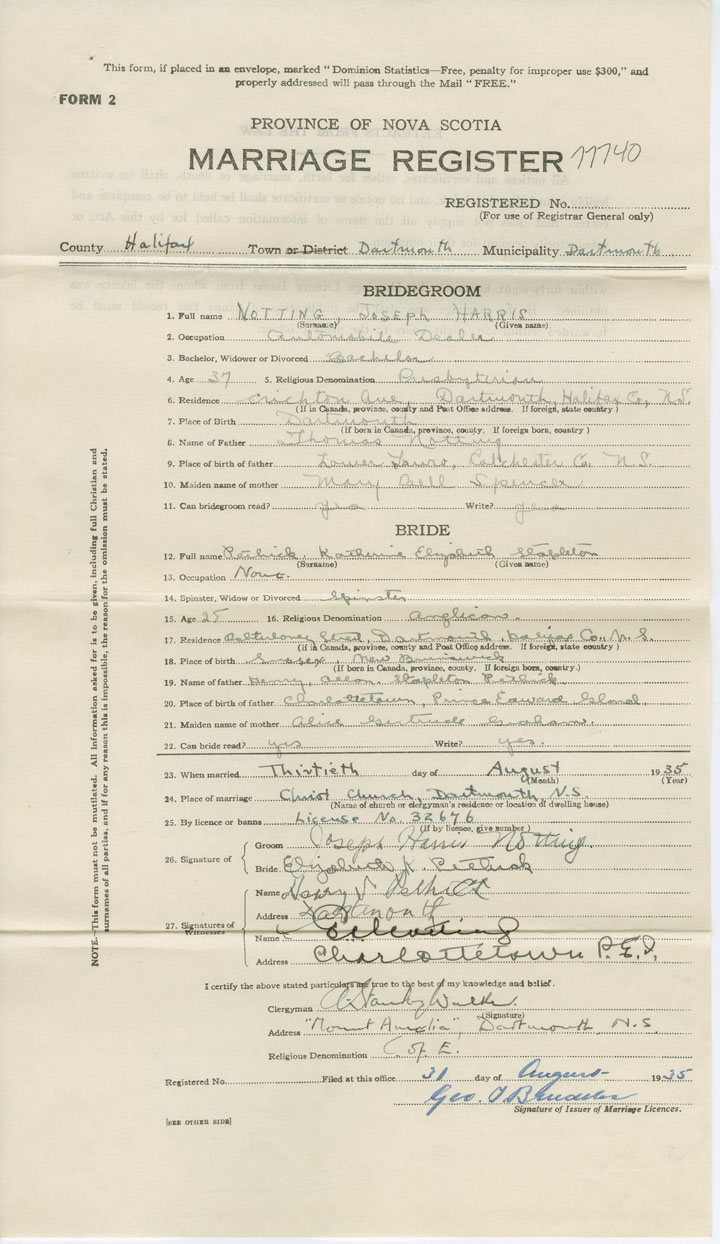 This form, if placed in an envelope, marked "Dominion Statistics—Free, penalty for improper use $300," and
properly addressed will pass through the Mail "FREE."
FORM 2
PROVINCE OF NOVA SCOTIA
MARRIAGE REGISTER 77740
REGISTERED No.
(For use of Registrar General only)
County Halifax Town or District Dartmouth Municipality Dartmouth
BRIDEGROOM
1. Full name NOTTING, JOSEPH HARRIS
(Surname) (Given name)
2. Occupation Automobile Dealer
3. Bachelor, Widower or Divorced Bachelor
4. Age 37 5. Religious Denomination Presbyterian
6. Residence Crichton Ave, Dartmouth, Halifax Co., N.S.
(If in Canada, province, county and Post Office address. If foreign, state country)
7. Place of Birth Dartmouth
(If born in Canada, province, county. If foreign born, country)
8. Name of Father Thomas Notting
9. Place of birth of father Lower Truro, Colchester Co. N.S.
10. Maiden name of mother Mary Bell Spencer
11. Can bridegroom read? yes Write? yes
BRIDE
12. Full name Pethick, Katherine Elizabeth Stapleton
(Surname) (Given name)
13. Occupation None.
14. Spinster, Widow or Divorced Spinster
15. Age 25 16. Religious Denomination Anglican.
17. Residence Street, Dartmouth, Halifax Co., N.S.
(If in Canada, province, county and Post Office address. If foreign, state country)
18. Place of birth Sussex, New Brunswick
(If born in Canada, province, county. If foreign born, country.)
19. Name of father Henry, Stapleton Pethick
20. Place of birth of father Charlottetown, Prince Edward Island,
21. Maiden name of mother Alice Gertrude Graham.
22. Can bride read? yes Write? yes.
23. When married Thirtieth day of August 1935
(Month) (Year)
24. Place of marriage Christ Church, Dartmouth, N.S.
(Name of church or clergyman's residence or location of dwelling house)
25. By licence or banns License No. 32676
(If by licence, give number)
26. Signature of
Groom Joseph Harris Notting.
Bride Elizabeth K. Pethick
27. Signatures of Witnesses
Name Henry Pethick
Address Dartmouth
Name Notting
Address Charlottetown P.E.I.
I certify the above stated particulars are true to the best of my knowledge and belief.
Clergyman Stanley Walker.
(Signature)
Address "Mount Amelia", Dartmouth N.S.
Religious Denomination C of E.
Registered No. Filed at this office 31 day of August 1935
Geo.
Signature of Issuer of Marriage Licences.
[SEE OTHER SIDE]
NOTE.—This form must not be mutilated. All information asked for is to be given, including full Christian and
surnames of all parties, and if for any reason this is impossible, the reason for the omission must be stated.